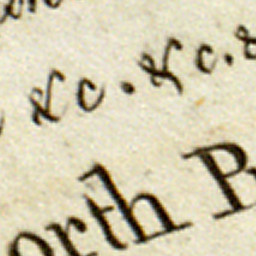 &c. &c. &
orth P